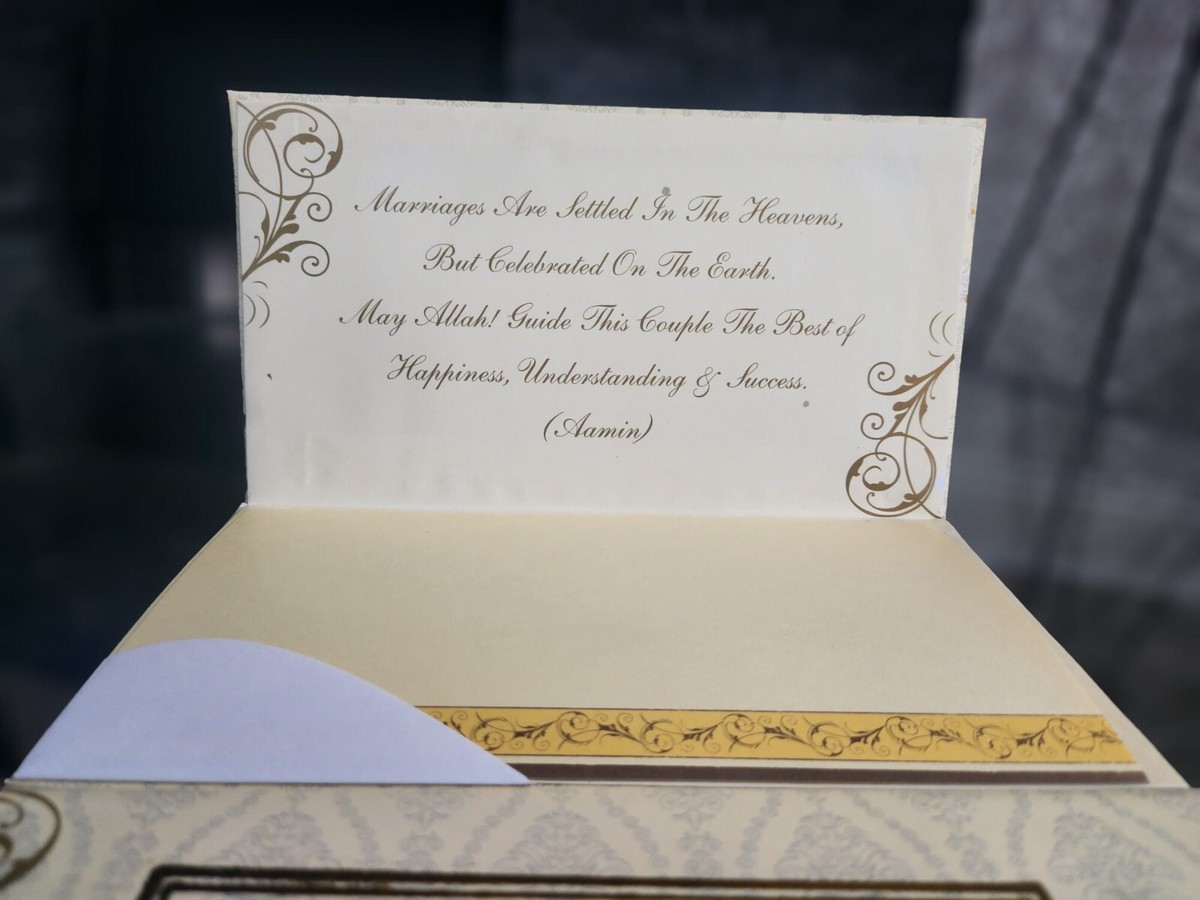 Marriages Are Settled In The Heavens,
But Celebrated On The Earth.
May Allah! Guide This Couple The Best of
Happiness, Understanding & Success.
(Aamin)